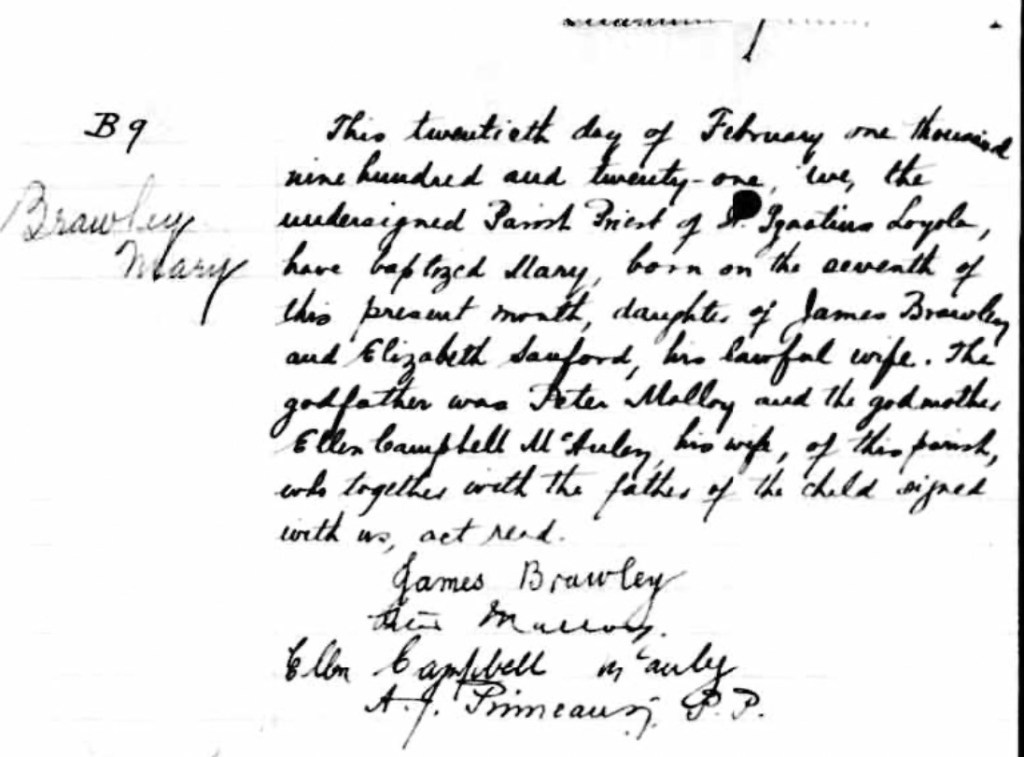 B 9
Brawley
Mary
This twentieth day of February one thousand
nine hundred and twenty-one, we, the
undersigned Parish Priest of St. Ignatius Loyola,
have baptized Mary, born on the seventh of
this present month, daughter of James Brawley
and Elizabeth Sanford, his lawful wife. The
godfather was Peter Malloy and the godmother
Ellen Campbell McAuley, his wife, of this parish,
who together with the father of the child signed
with us, act read.
James Brawley
Ellen Campbell McAuley
A. J. Primeau, P. P.